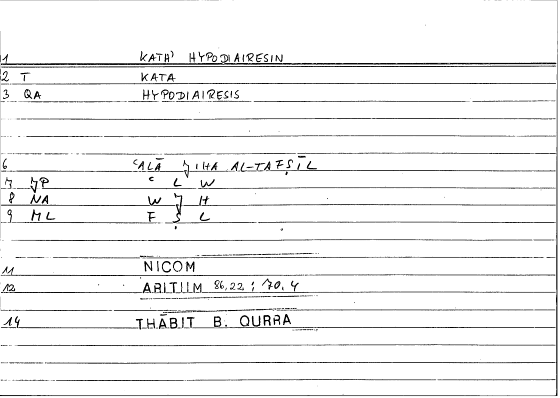 1 KATH' HYPODIAIRESIN
2 T KATA
3 QA HYPODIAIRESIS
6 ʿALĀ ǦIHA AL-TAFṢĪL
7 JP ʿ L W
8 NA W Ǧ H
9 ML F Ṣ L
11 NICOM
12 ARITIIM 86,22 ; 70.4
14 THĀBIT B. QURRA